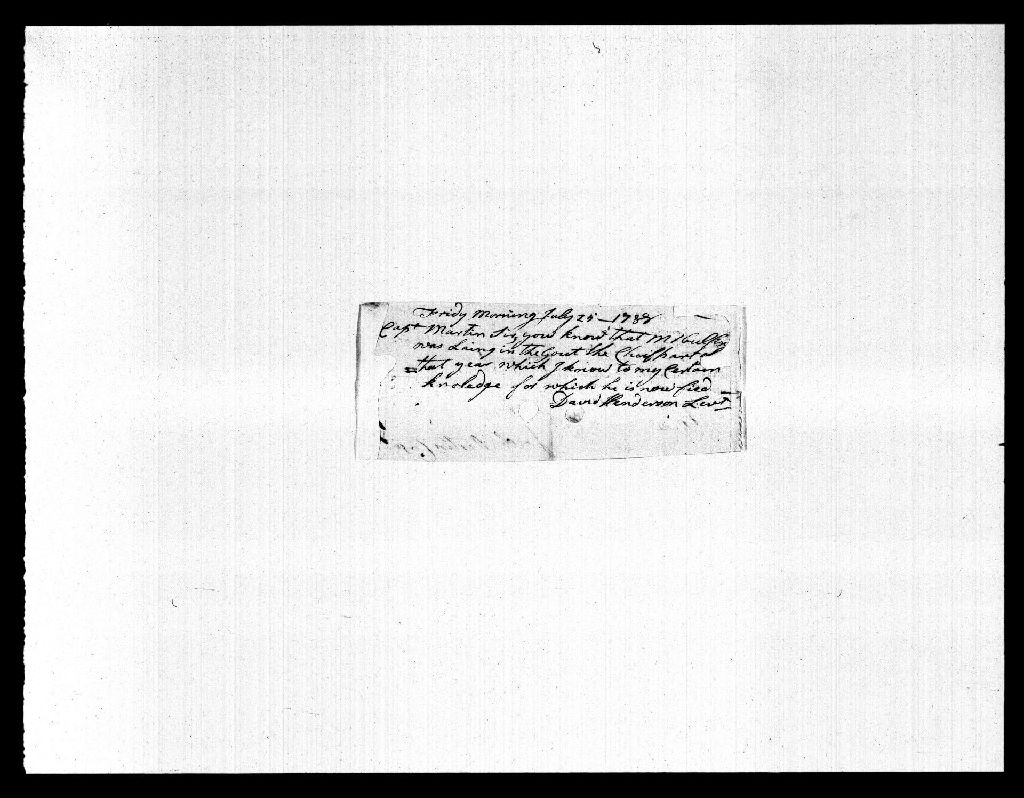 Fridy Morning July 25 - 1788
Capt Martin Sir, you know that Mr
was Laing in the Gout the Cheif part of
that year which I know to my Certain
knoledge for which he is now sued
David Henderson Levt